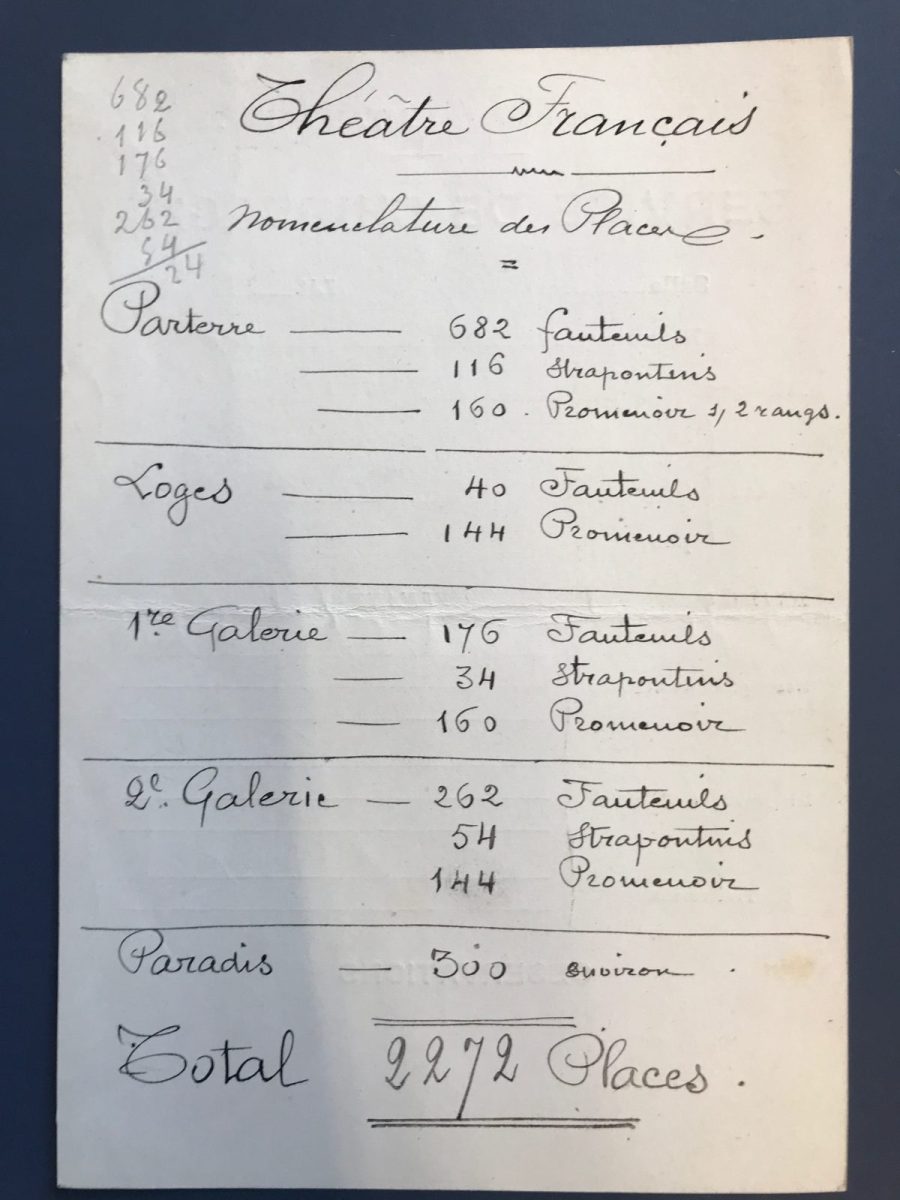 682
116
176
34
262
54
24
Théâtre Français
Nomenclature des Places.
Parterre — 682 fauteuils
— 116 Strapontins
— 160. Promenoir 1, 2 rangs.
Loges — 40 Fauteuils
— 144 Promenoir
1re Galerie — 176 Fauteuils
— 34 Strapontins
— 160 Promenoir
2e. Galerie — 262 Fauteuils
54 Strapontins
144 Promenoir
Paradis — 300 environ.
Total 2272 Places.